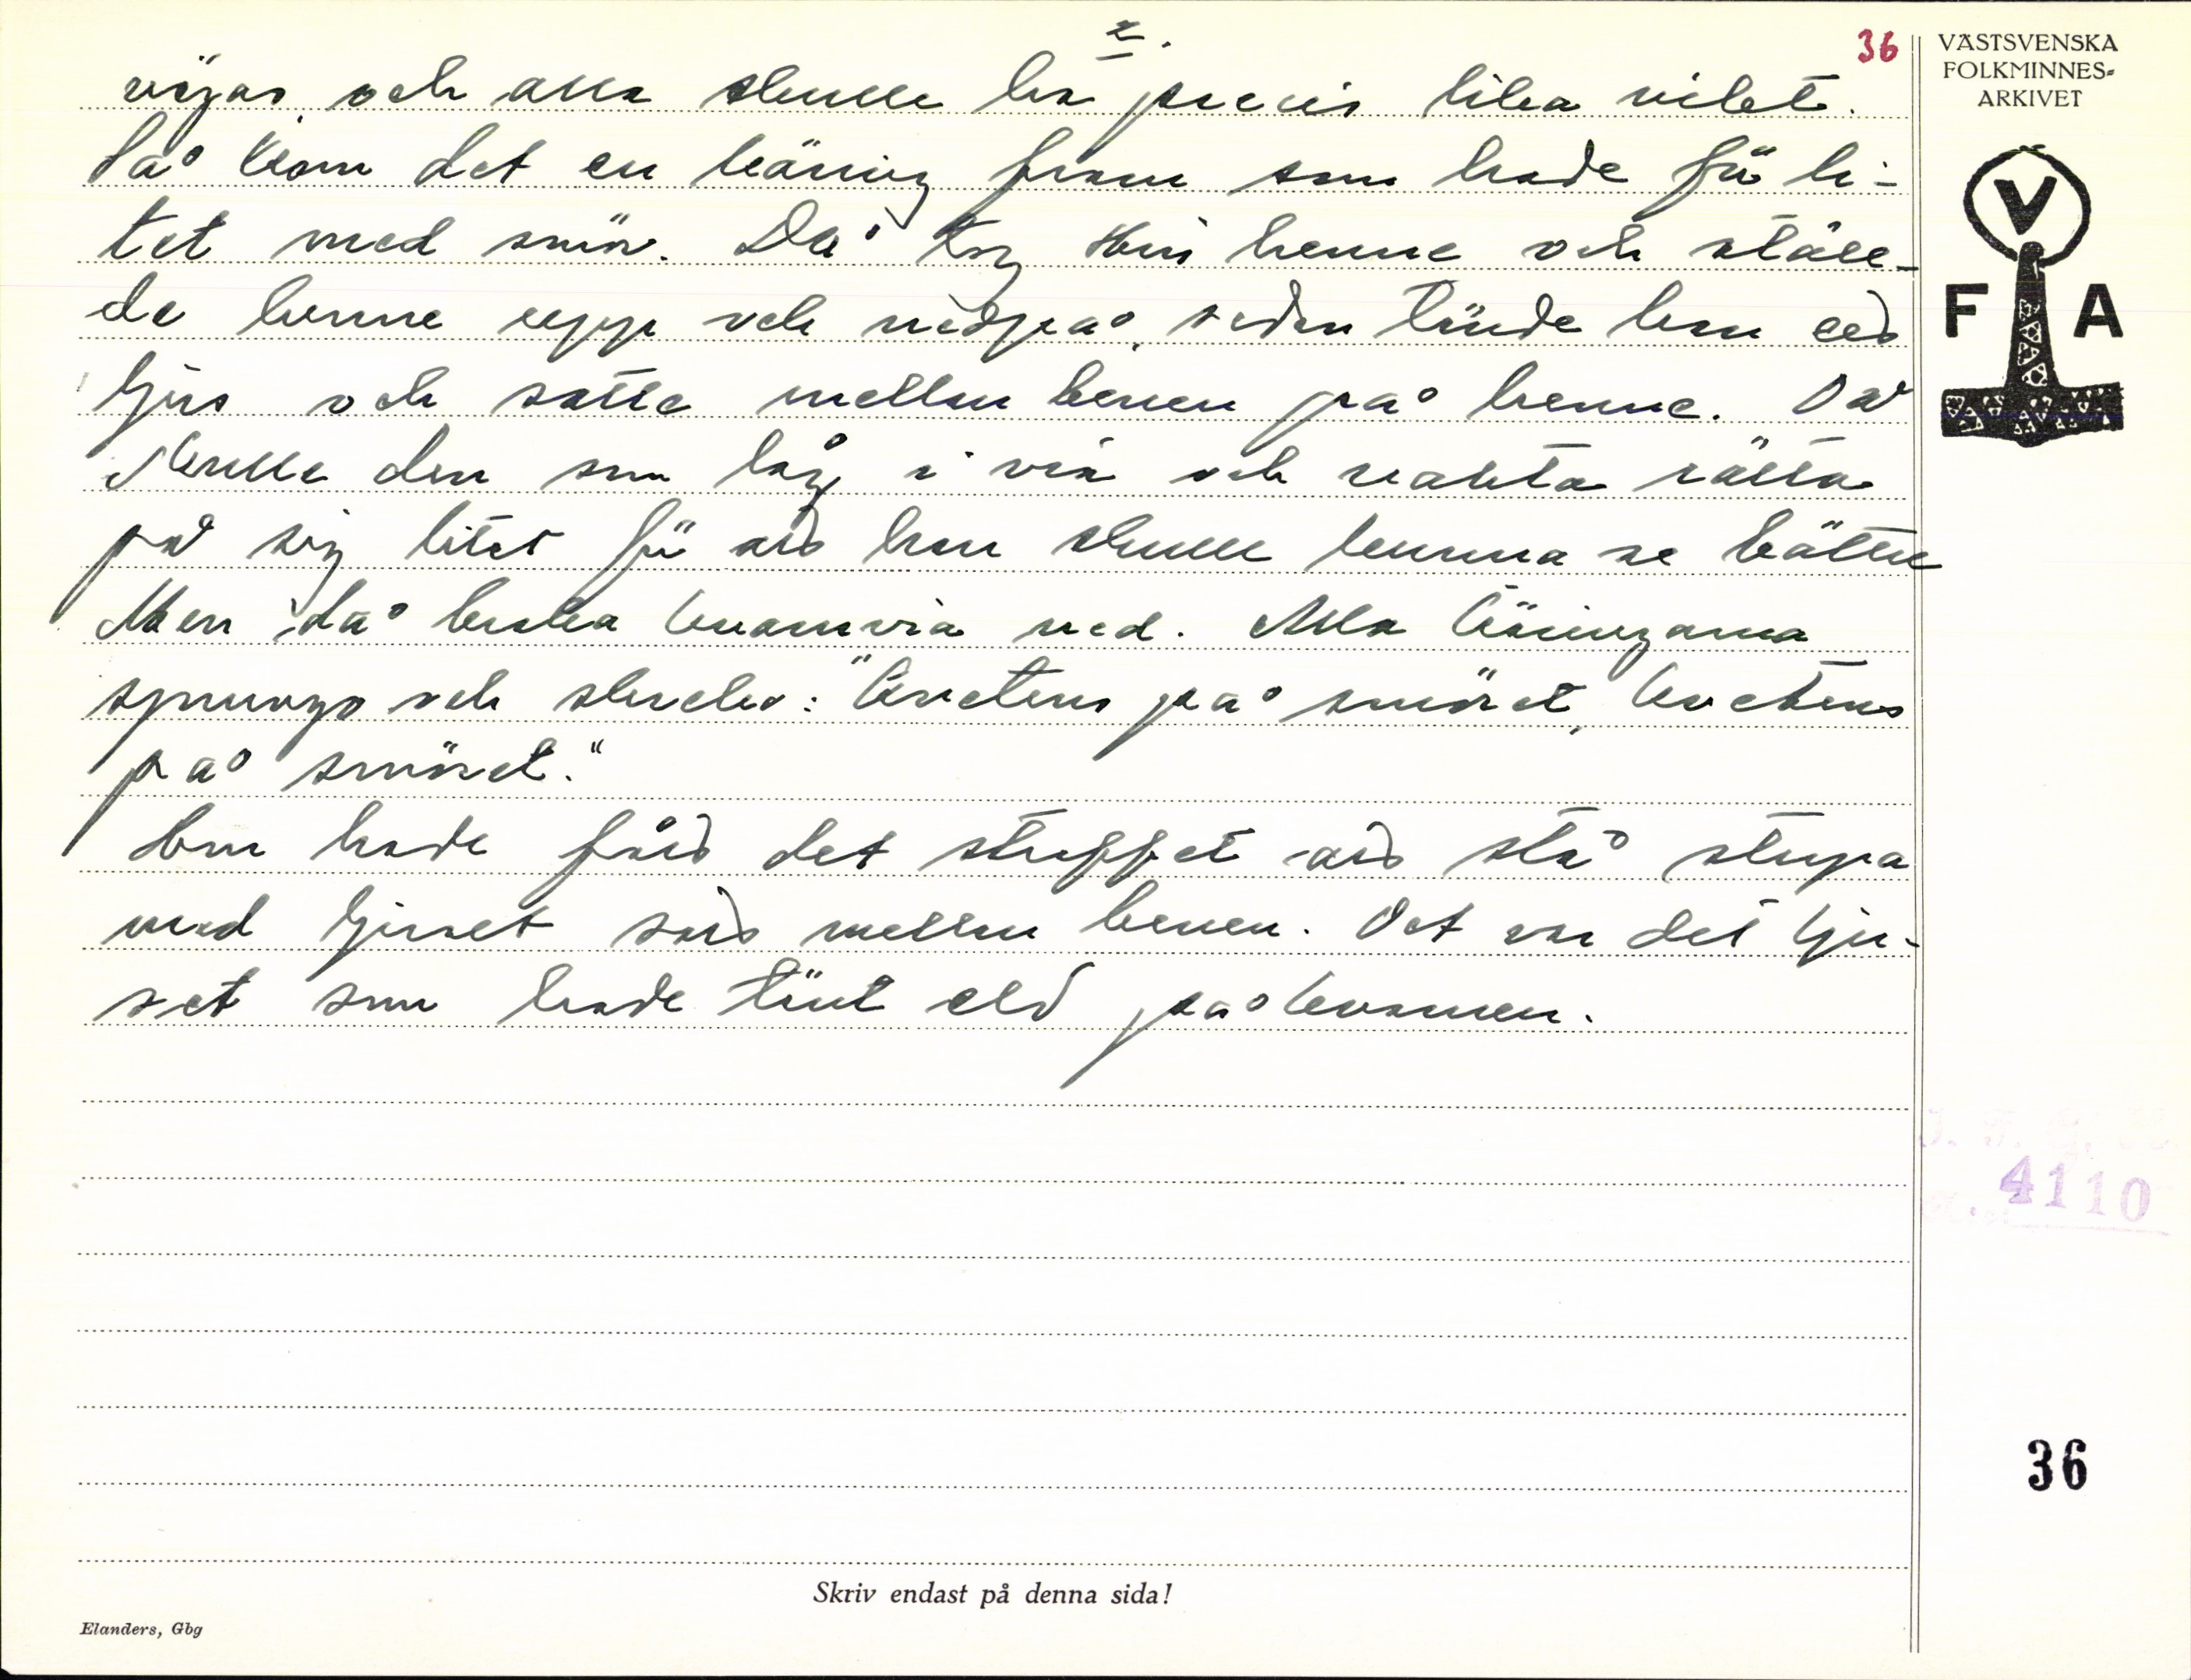 2.
36
vägas, och alla skulle ha precis lika vikt.
Så kom det en käring fram som hade för li-
tet med smör. Då tog Hin henne och ställ-
de henne upp och nedpå, sedan tände han ett
ljus och satte mellan benen på henne. Då
skulle den som låg i via och vakta rätta
på sig litet för att han skulle kunna se bättre
Men då braka kvamvia ned. Alla käringarna
sprungo och skreko: "Kvetens på smöret, kvetens
på smöret."
Hon hade fått det straffet att stå stupa
med ljuset satt mellan benen. Det var det lju-
set som hade tänt eld på kvarnen.
VÄSTSVENSKA
FOLKMINNES-
ARKIVET
V
F A
4110
36
Skriv endast på denna sida!
Elanders, Gbg